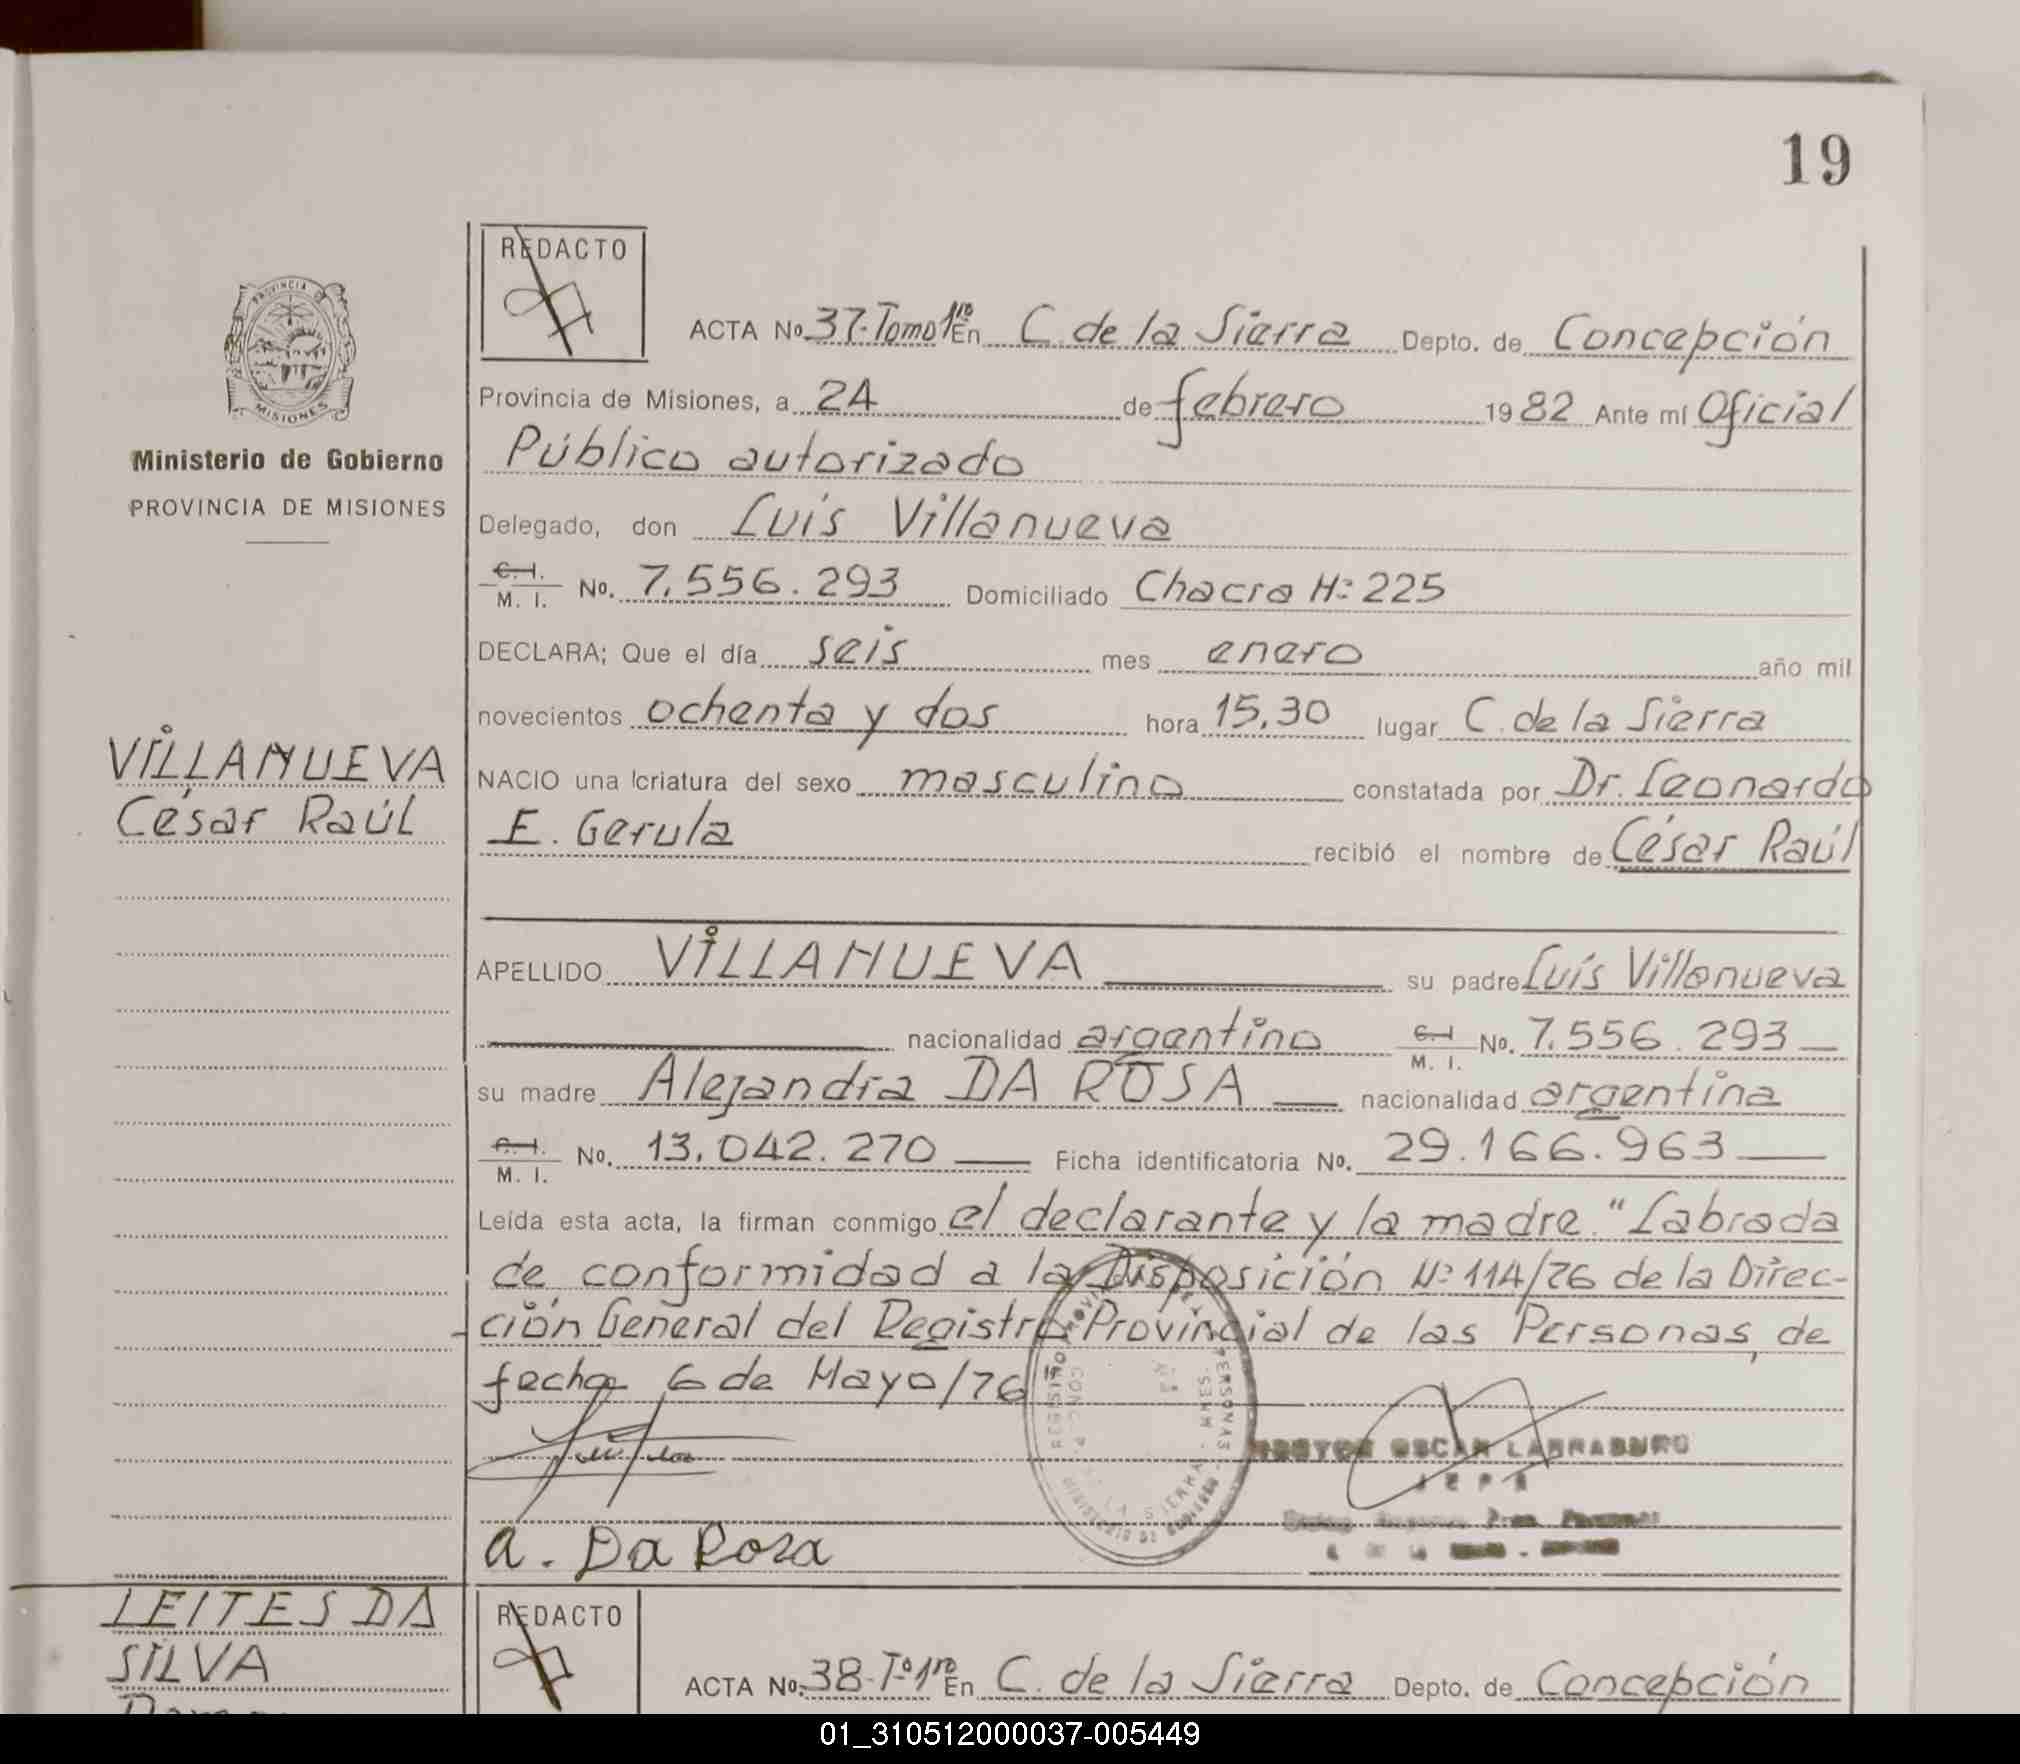 19
REDACTO
ACTA Nº 37-Tomo 1ro En C. de la Sierra Depto. de Concepción
Provincia de Misiones, a 24 de febrero 1982 Ante mí Oficial
Público autorizado
Delegado, don Luis Villanueva
C. I. M. I. Nº. 7.556.293 Domiciliado Chacra Nº 225
DECLARA; Que el día seis mes enero año mil
novecientos ochenta y dos hora 15,30 lugar C. de la Sierra
NACIO una criatura del sexo masculino constatada por Dr. Leonardo
E. Gerula recibió el nombre de César Raúl
APELLIDO VILLANUEVA su padre Luís Villanueva
nacionalidad argentino C. I. M. I. Nº. 7.556.293
su madre Alejandra DA ROSA nacionalidad argentina
C. I. M. I. Nº. 13.042.270 Ficha identificatoria Nº. 29.166.963
Leída esta acta, la firman conmigo el declarante y la madre. "Labrada
de conformidad a la Disposición Nº 114/76 de la Direc-
ción General del Registro Provincial de las Personas, de
fecha 6 de Mayo/76
OSCAR
JEFE
a. Da Rosa
PROVINCIA DE
MISIONES
Ministerio de Gobierno
PROVINCIA DE MISIONES
VILLANUEVA
César Raúl
LEITES DA
SILVA
REDACTO
ACTA Nº. 38-Tº 1ro En C. de la Sierra Depto. de Concepción
01_310512000037-005449